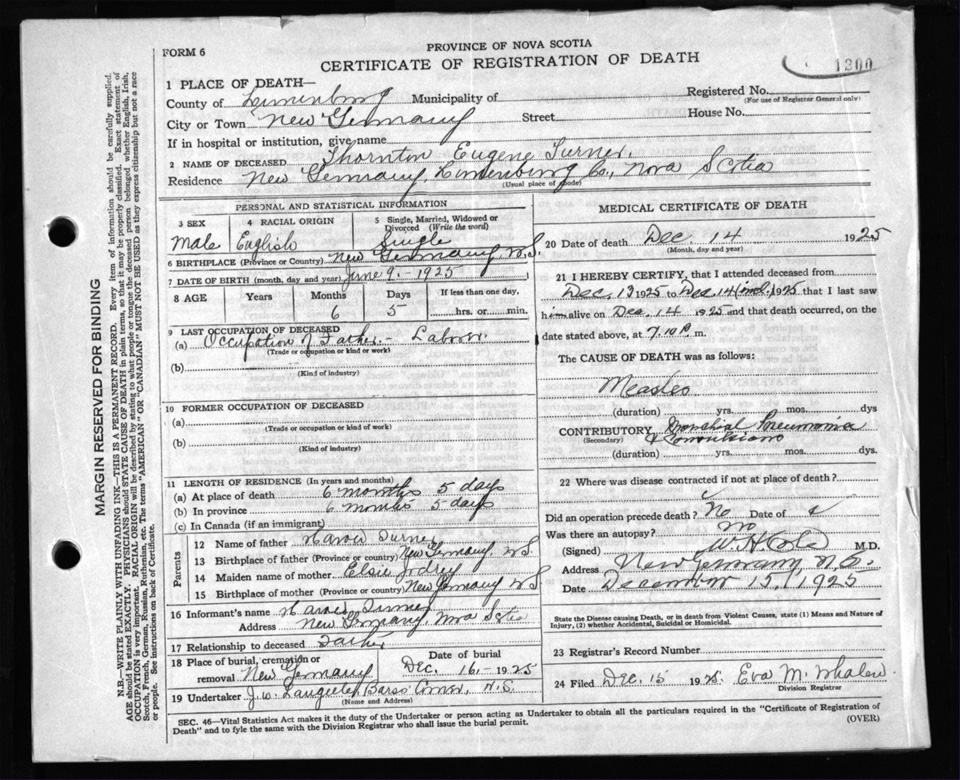 FORM 6
PROVINCE OF NOVA SCOTIA
CERTIFICATE OF REGISTRATION OF DEATH
1200
1 PLACE OF DEATH—
County of Lunenburg Municipality of
Registered No.
(For use of Registrar General only)
City or Town New Germany Street House No.
If in hospital or institution, give name
2 NAME OF DECEASED Thornton Eugene Turner
Residence New Germany, Lunenburg Co., Nova Scotia
(Usual place of abode)
PERSONAL AND STATISTICAL INFORMATION
3 SEX 4 RACIAL ORIGIN 5 Single, Married, Widowed or Divorced (Write the word)
Male English Single
6 BIRTHPLACE (Province or Country) New Germany, N.S.
7 DATE OF BIRTH (month, day and year) June 9 - 1925
8 AGE Years Months Days If less than one day,
6 5 hrs. or min.
9 LAST OCCUPATION OF DECEASED
(a) Occupation of Father - Labour
(Trade or occupation or kind or work)
(b)
(Kind of industry)
10 FORMER OCCUPATION OF DECEASED
(a)
(Trade or occupation or kind of work)
(b)
(Kind of industry)
11 LENGTH OF RESIDENCE (In years and months)
(a) At place of death 6 months 5 days
(b) In province 6 months 5 days
(c) In Canada (if an immigrant)
Parents
12 Name of father Turner
13 Birthplace of father (Province or country) New Germany, N.S.
14 Maiden name of mother Elsie
15 Birthplace of mother (Province or country) New Germany N.S.
16 Informant's name Turner
Address New Germany, Nova Scotia
17 Relationship to deceased Father
18 Place of burial, cremation or removal Date of burial
New Germany Dec. 16 - 1925
19 Undertaker J.W. N.S.
(Name and Address)
MEDICAL CERTIFICATE OF DEATH
20 Date of death Dec. 14 1925
(Month, day and year)
21 I HEREBY CERTIFY, that I attended deceased from
Dec. 13 1925 to Dec 14 (incl.) 1925 that I last saw
him alive on Dec. 14 1925 and that death occurred, on
date stated above, at 7.10 P. m.
The CAUSE OF DEATH was as follows:
Measles
(duration) yrs. mos. dys
CONTRIBUTORY Bronchial Pneumonia
(Secondary) & Convulsions
(duration) yrs. mos. dys.
22 Where was disease contracted if not at place of death?
Did an operation precede death? No Date of
Was there an autopsy? No
(Signed) W.H. Cole M.D.
Address New Germany N.S.
Date December 15, 1925
State the Disease causing Death, or in death from Violent Causes, state (1) Means and Nature of
Injury, (2) whether Accidental, Suicidal or Homicidal.
23 Registrar's Record Number
24 Filed Dec. 15 1925. Eva M. Whalen
Division Registrar
SEC. 46—Vital Statistics Act makes it the duty of the Undertaker or person acting as Undertaker to obtain all the particulars required in the "Certificate of Registration of
Death" and to fyle the same with the Division Registrar who shall issue the burial permit.
(OVER)
MARGIN RESERVED FOR BINDING
N.B.—WRITE PLAINLY WITH UNFADING INK—THIS IS A PERMANENT RECORD. Every item of information should be carefully supplied.
AGE should be stated EXACTLY. PHYSICIANS should STATE CAUSE OF DEATH in plain terms, so that it may be properly classified. Exact statement of
OCCUPATION is very important. RACIAL ORIGIN will be described by stating to what people or tongue the deceased person belonged whether English, Irish,
Scotch, French, German, Russian, Ruthenian, etc. The terms "AMERICAN" OR "CANADIAN" MUST NOT BE USED as they express citizenship but not a race
or people. See instructions on back of Certificate.